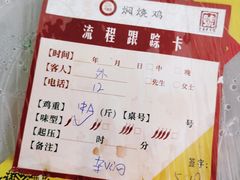 焖烧鸡
流程跟踪卡
【时间】 年 月 日 □中 □晚
【客人】 外 □先生 □女士
【电话】 12
【鸡重】 (斤)【桌号】 号
【味型】
【起压】 时 分
【备注】
签字: